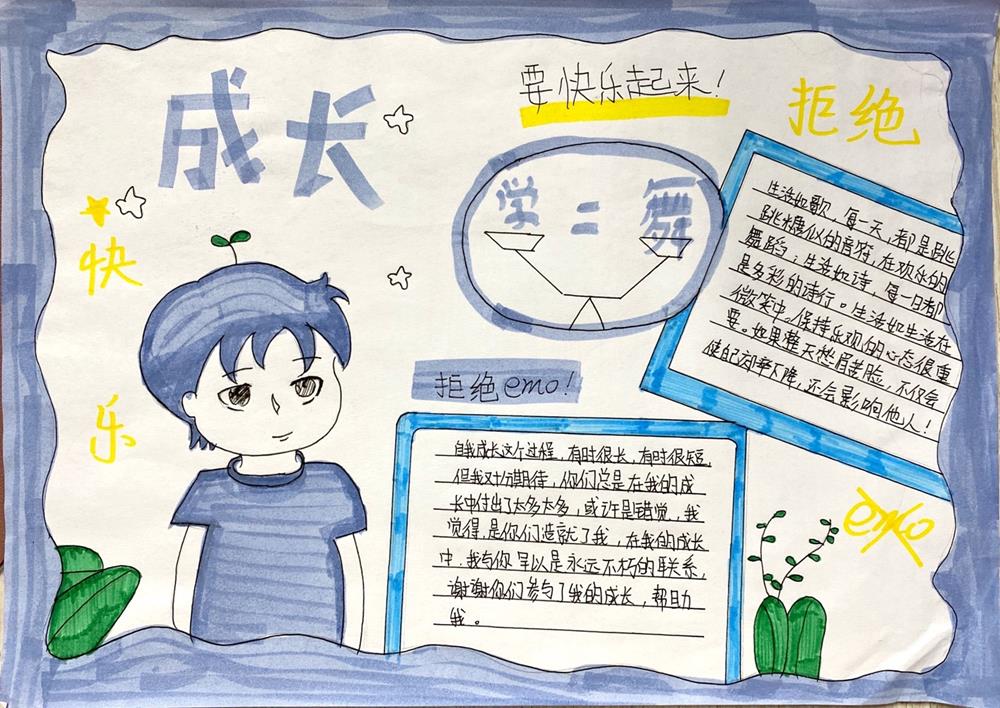 成长
要快乐起来！
拒绝
快
乐
学二舞
生活如歌，每一天，都是跳
跳糖似的音符，在欢乐的
舞蹈；生活如诗，每一日都
是多彩的诗行。生活如生活在
微笑中。保持乐观的心态很重
要。如果整天愁眉苦脸，不仅会
使自己效率下降，还会影响他人！
拒绝emo！
自我成长这个过程，有时很长，有时很短，
但我对期待，你们总是在我的成
长中付出了太多太多，或许是错觉，我
觉得，是你们造就了我，在我的成长
中，我与你 是永远不朽的联系，
谢谢你们参与了我的成长，帮助
我。
emo